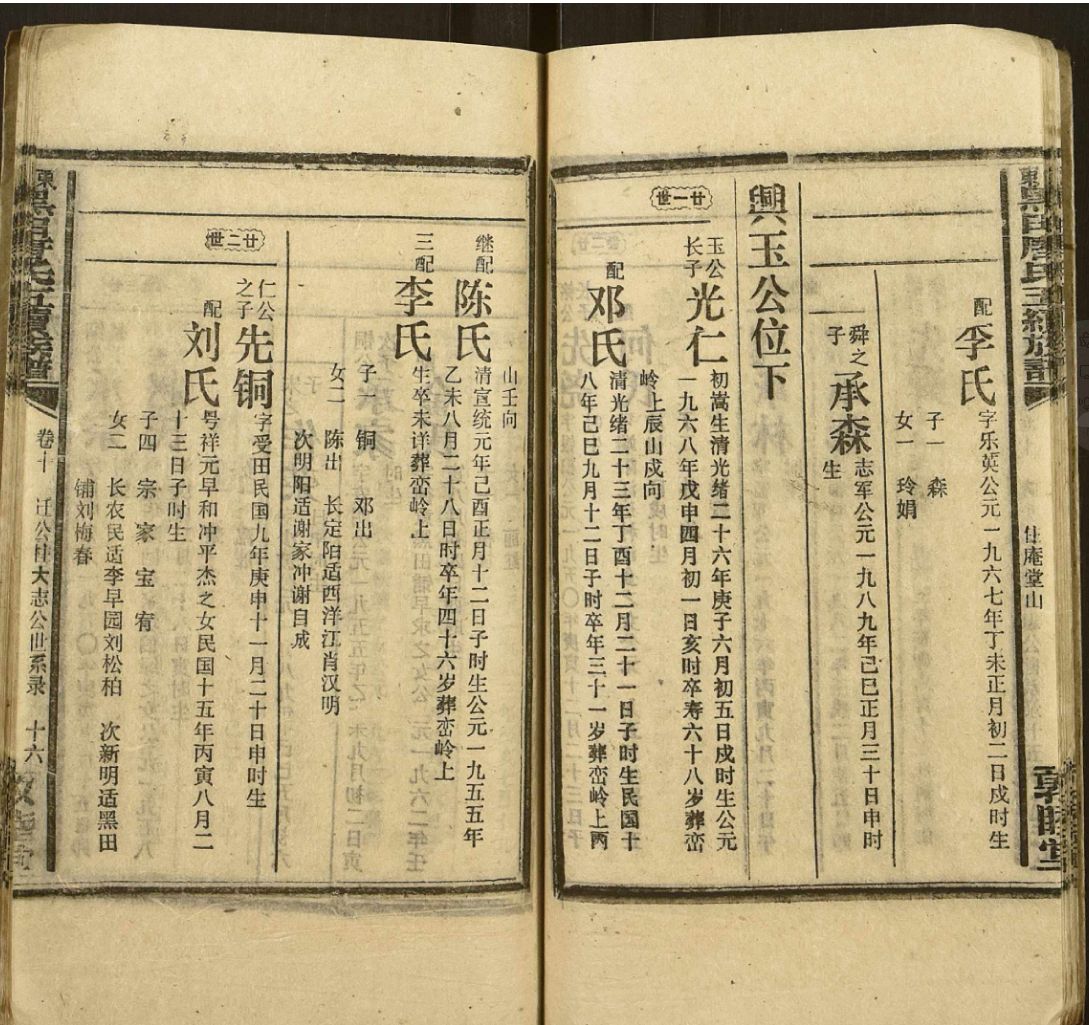 配
李氏
字乐英公元一九六七年丁未正月初二日戍时生
住庵堂山
子一　森
女一　玲娟
舜之子
承森
志军公元一九八九年己巳正月三十日申时生
興玉公位下
廿一世
玉公长子
光仁
初嵩生清光绪二十六年庚子六月初五日戍时生公元
一九六八年戊申四月初一日亥时卒寿六十八岁葬峦
岭上辰山戍向
配
邓氏
清光绪二十三年丁酉十二月二十一日子时生民国十
八年己巳九月十二日子时卒年三十一岁葬峦岭上丙
山壬向
继配
陈氏
清宣统元年己酉正月十二日子时生公元一九五五年
乙未八月二十八日时卒年四十六岁葬峦岭上
三配
李氏
生卒未详葬峦岭上
子一　铜　邓出
女二　陈出　长定阳适西洋江肖汉明
次明阳适谢家冲谢自成
廿二世
仁公之子
先铜
字受田民国九年庚申十一月二十日申时生
配
刘氏
号祥元早和冲平杰之女民国十五年丙寅八月二
十三日子时生
子四　宗　家　宝　宥
女二　长农民适李早园刘松柏　次新明适黑田
铺刘梅春
卷十　迁公柱大志公世系录　十六